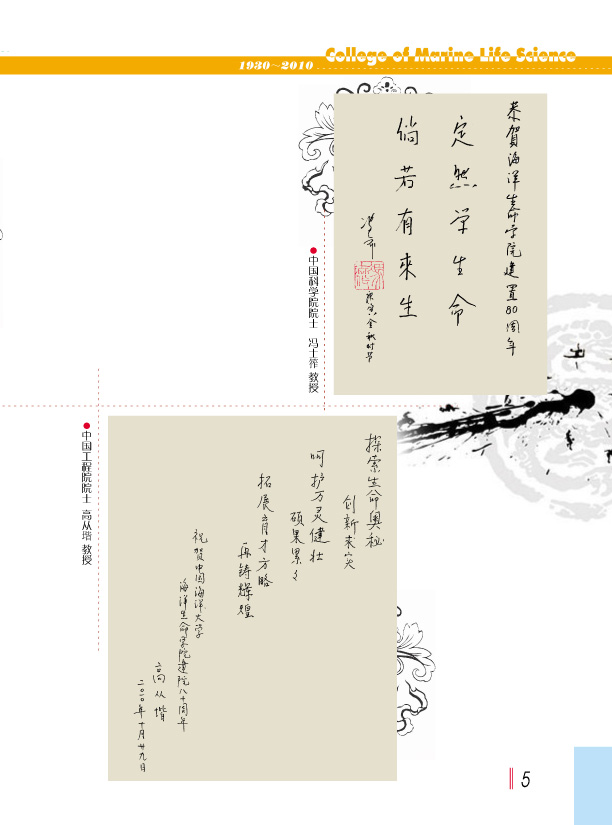 College of Marine Life Science
1930~2010
恭賀海洋生命学院建置80周年
定然学生命
倘若有來生
冯士筰
庚寅金秋时节
中国科学院院士 冯士筰 教授
探索生命奥秘
创新未穷
呵护万灵健壮
硕果累々
拓展育才方略
再铸辉煌
祝贺中国海洋大学
海洋生命学院建院八十周年
高从堦
二〇一〇年十月廿九日
中国工程院院士 高从堦 教授
5